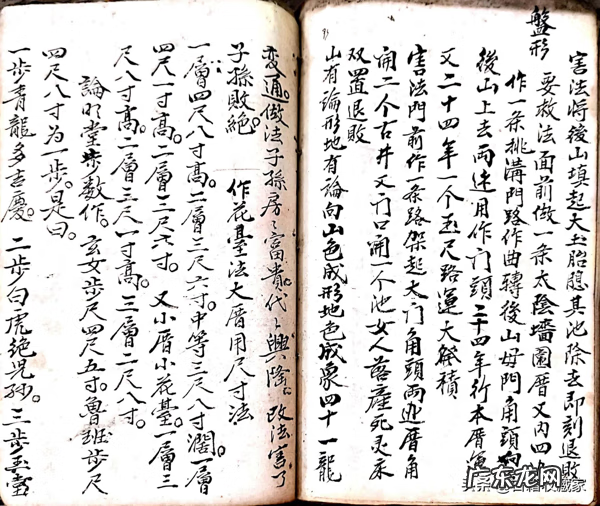 盤形
害法将後山填起大土胎腮其池除去即刻退敗
要救法面前做一条太陰墻圍厝又内四
作一条挑溝門路作曲轉後山毋門角頭向
後山上去兩迯月作门頭二十四年行本厝
又二十四年一个玉尺路運大發積
害法門前作一条路架起大门角頭兩迯厝角
開二个古井又门口開一个池女人落産死灵床
双置退敗
山有論形地有論向山色成形地色成象四十一龍
变通做法子孫房々富貴代々興隆。改法害了
子孫敗絶。　作花臺法大厝用尺寸法
一層四尺八寸高。二層三尺六寸。中等三尺八寸濶。一層
四尺一寸高。二層三尺七寸。　又小厝小花臺。一層三
尺八寸高。二層三尺一寸高。三層二尺八寸。
論明堂步數作。玄女步尺四尺五寸。魯班步尺
四尺八寸为一步。是曰。
一步青龍多吉慶。　二步白虎絶兒孙。　三步
廣东龙网
头条@古籍收藏家